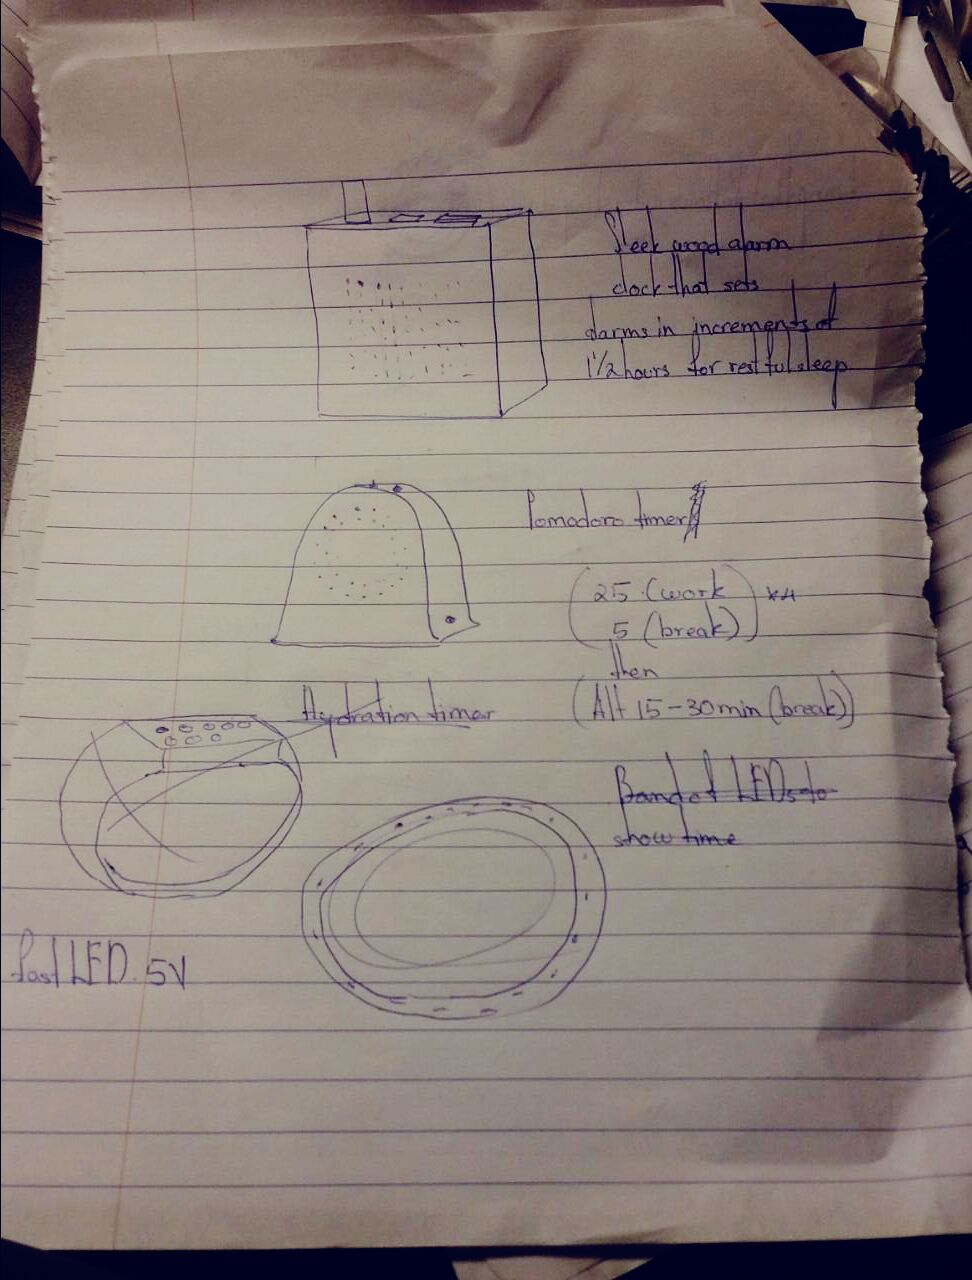 Sleek wood alarm
clock that sets
alarms in increments of
1 1/2 hours for restful sleep
Pomodoro timer
(25 (work)
5 (break)) x4
then
(Alt 15-30min (break))
Hydration timer
Band of LEDs to
show time
fast LED. 5V